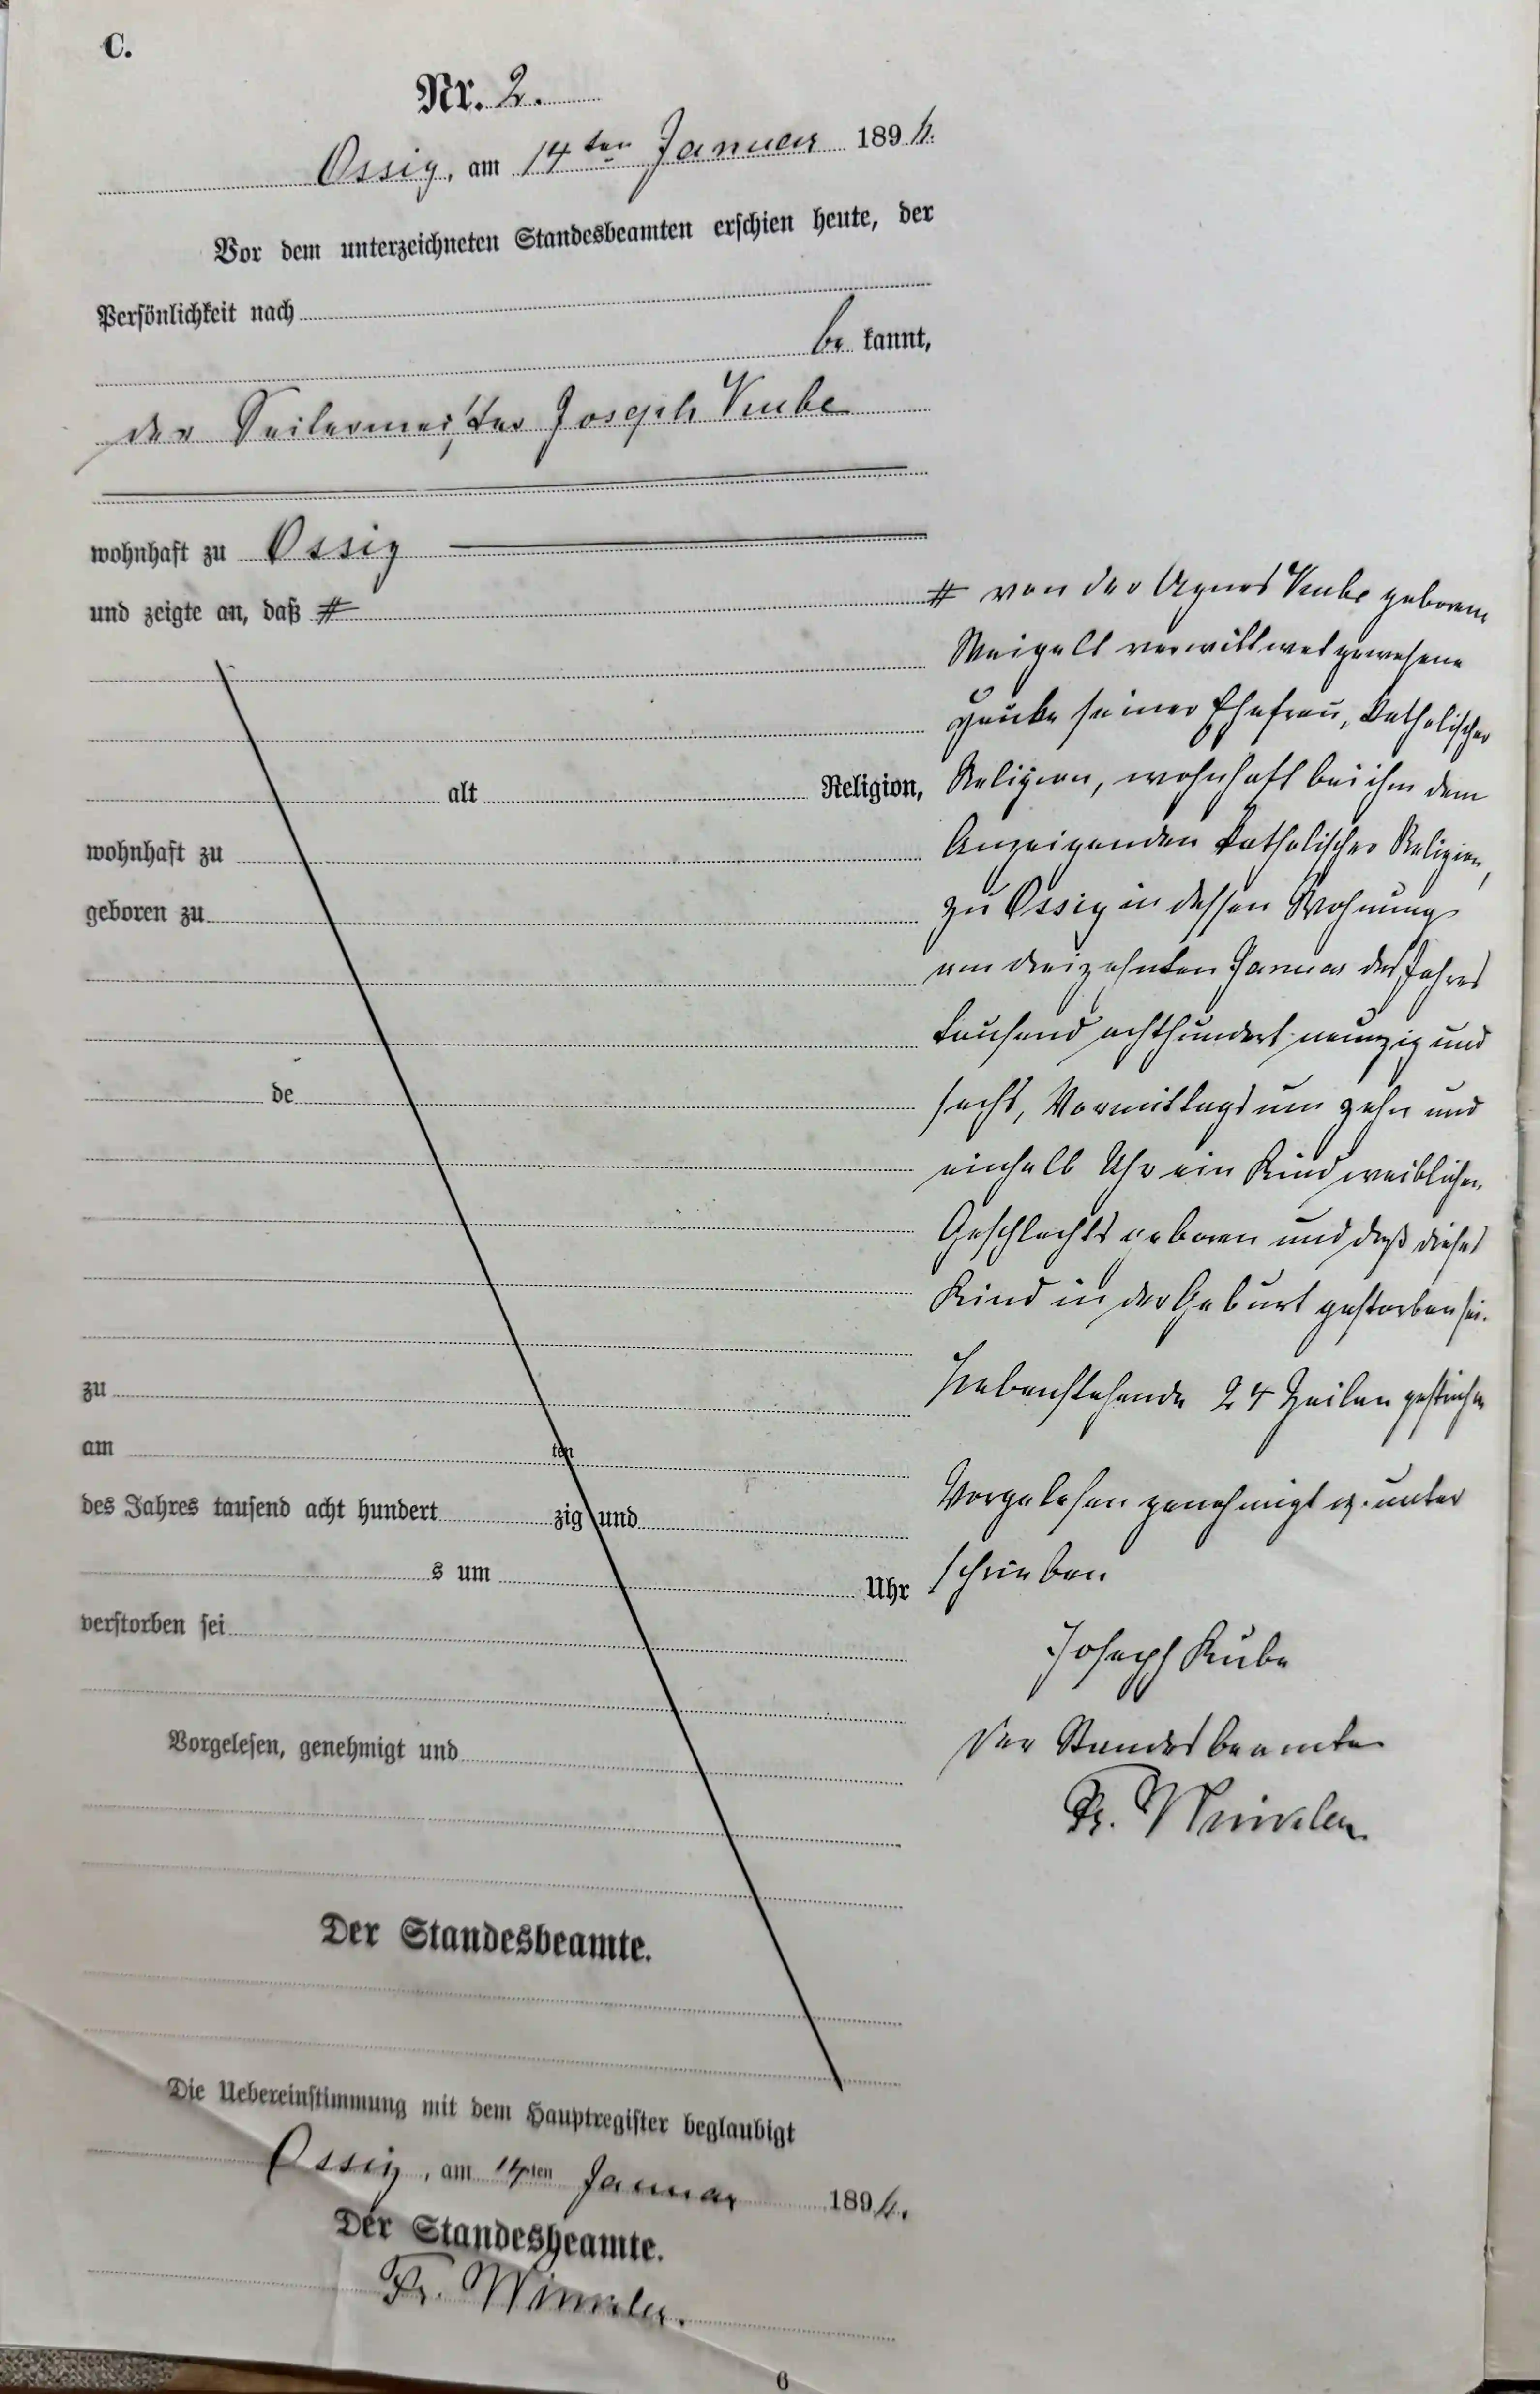 C.
Nr. 2.
Ossig, am 14ten Januar 1896.
Vor dem unterzeichneten Standesbeamten erschien heute, der
Persönlichkeit nach
be kannt,
der Seilermeister Joseph Kube
wohnhaft zu Ossig
und zeigte an, daß #
# von der Agnes Kube geborene
Weigelt verwittwet gewesene
seiner Ehefrau, katholischer
alt Religion,
Religion, wohnhaft bei ihm dem
wohnhaft zu
Anzeigenden katholischer Religion,
geboren zu
zu Ossig in dessen Wohnung
am dreizehnten Januar des Jahres
tausend achthundert neunzig und
de
sechs, Vormittags um zehn und
einhalb Uhr ein Kind weiblichen
Geschlechts geboren und daß dieses
Kind in der Geburt gestorben sei.
zu
Nebenstehende 24 Zeilen gestrichen
am ten
des Jahres tausend acht hundert zig und
Vorgelesen genehmigt u. unter
s um Uhr
schrieben
verstorben sei
Joseph Kube
Vorgelesen, genehmigt und
Der Standesbeamte
Fr. Winkler
Der Standesbeamte.
Die Uebereinstimmung mit dem Hauptregister beglaubigt
Ossig, am 14ten Januar 1896.
Der Standesbeamte.
Fr. Winkler.
6